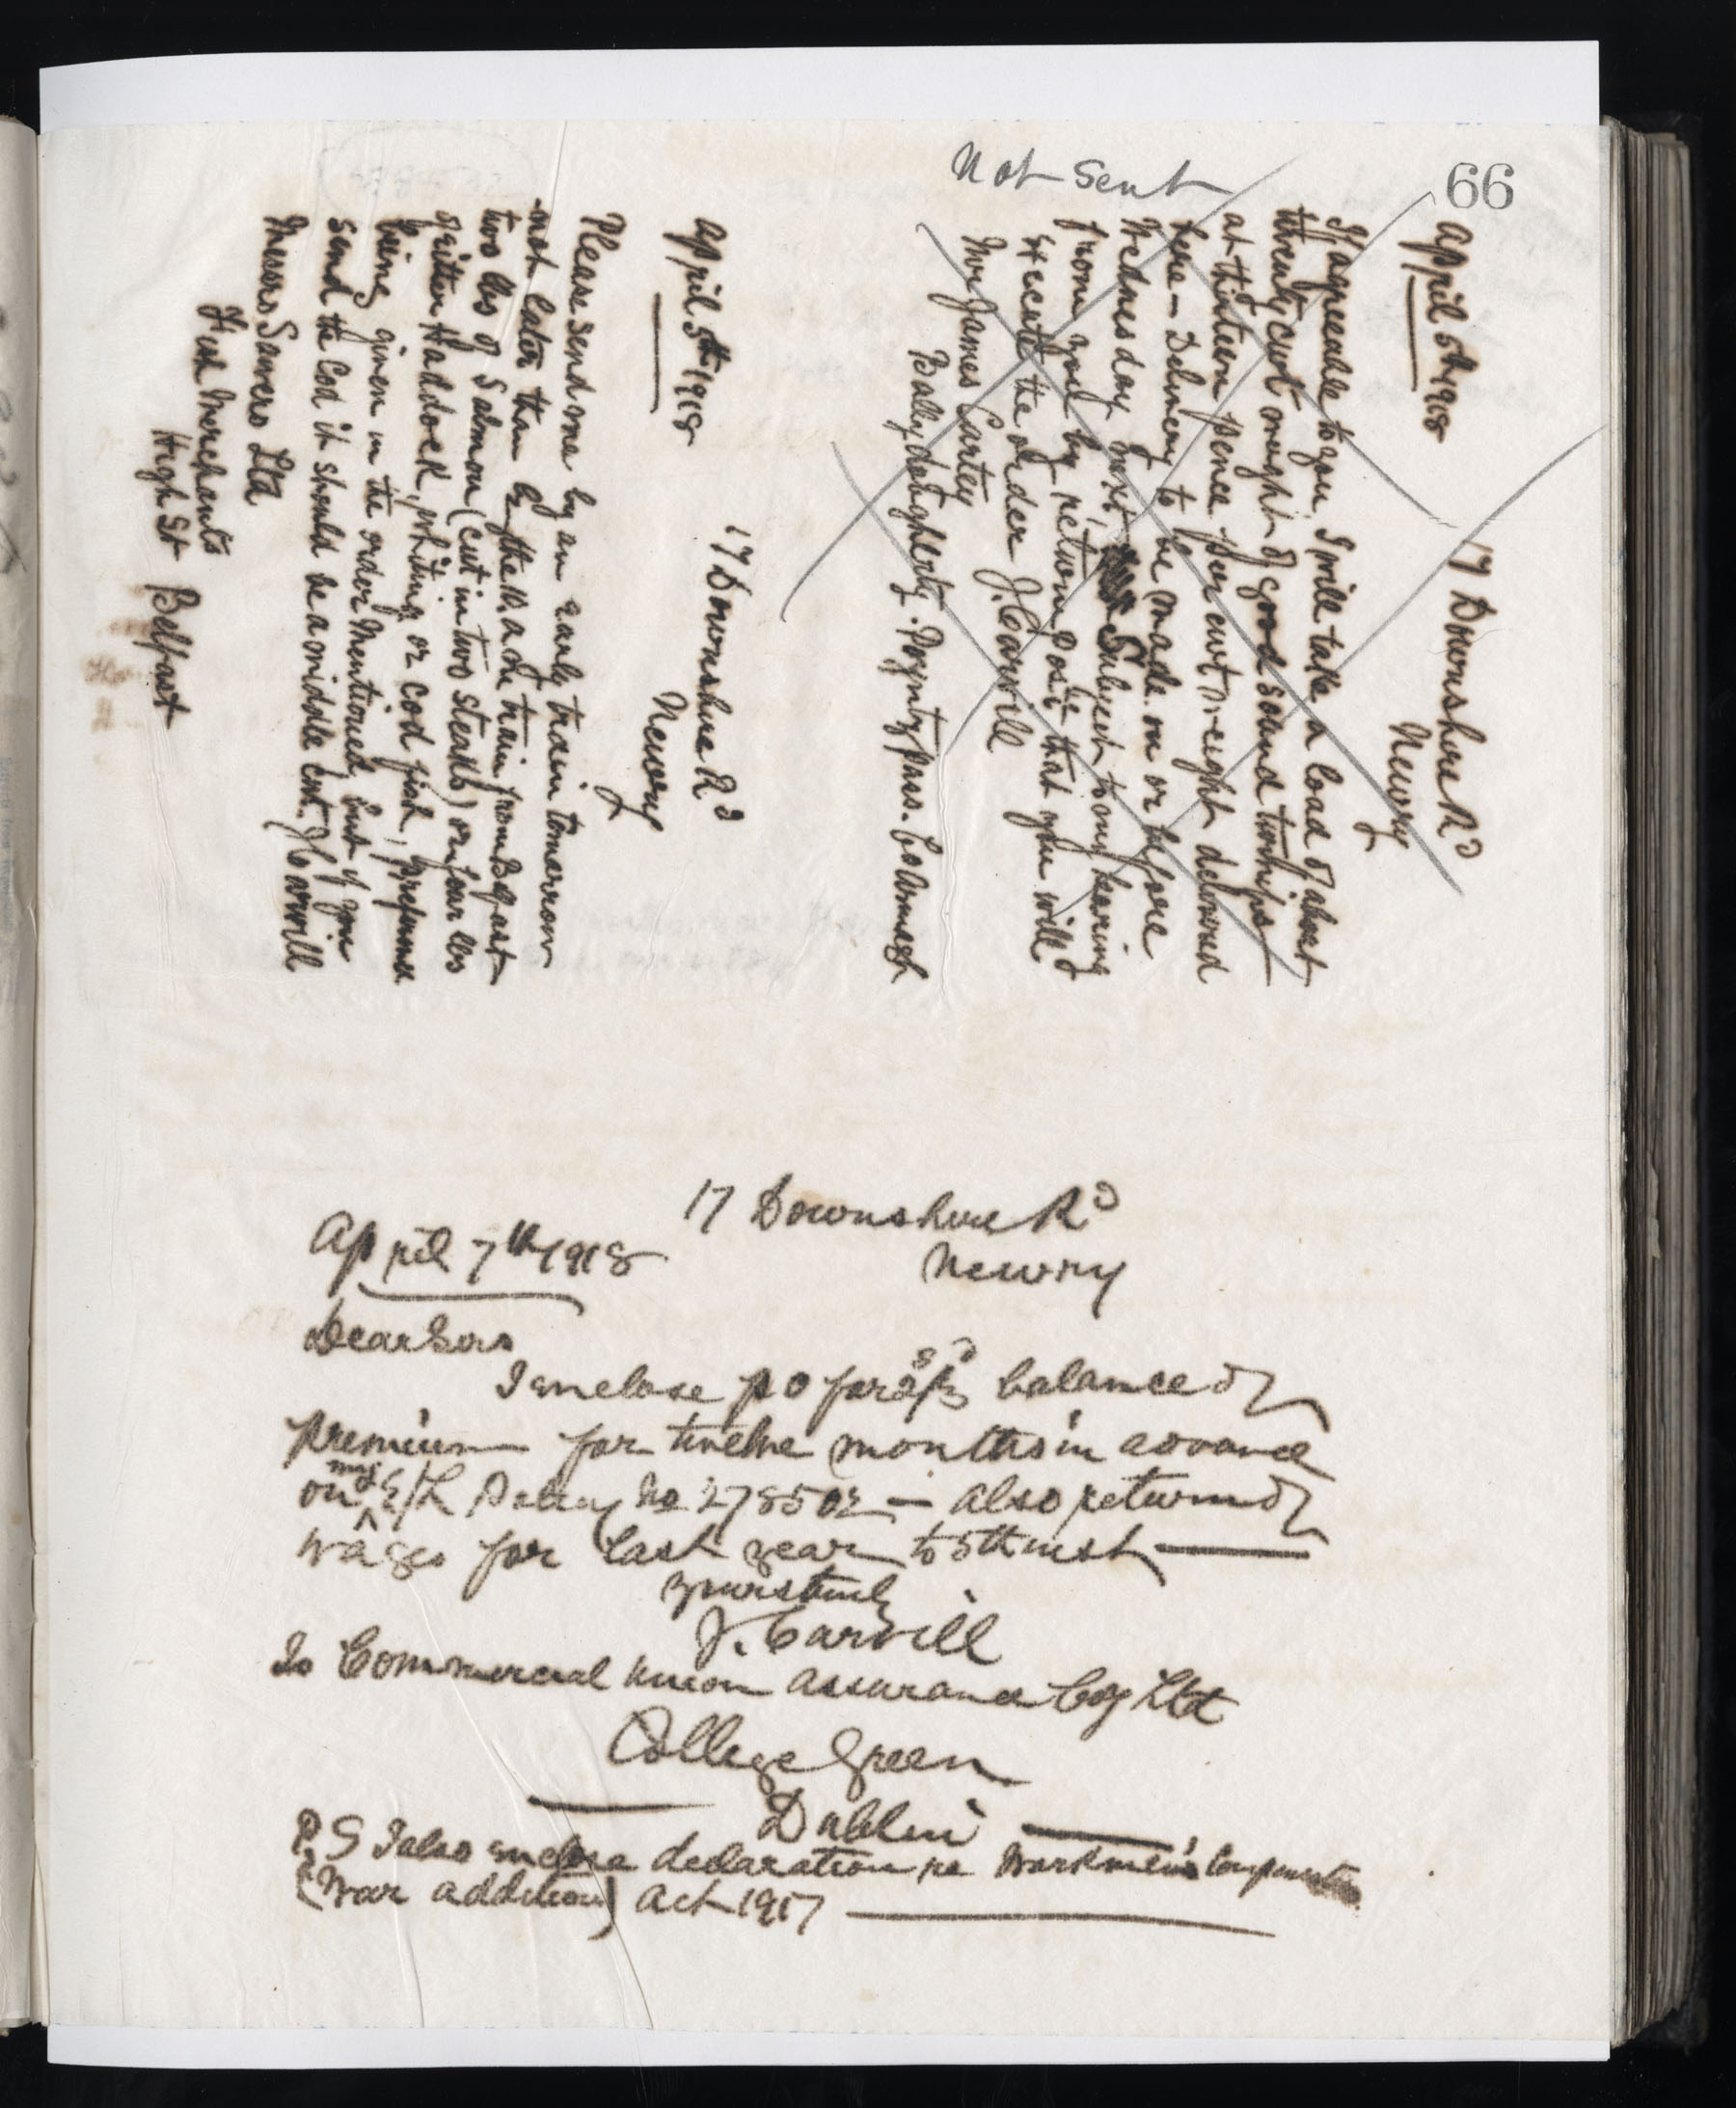 66
Not Sent
17 Downshire Rd
Newry
April 5th 1918
If agreeable to you I will take a load of about
twenty cwt weight of good sound turnips
at thirteen pence per cwt weight delivered
here - Delivery to be made on or before
Wednesday next, Subject to my hearing
from you by return post that you will
execute the order J. Carvill
Mr James Cartey
Ballydoughlerty. Poyntzpass. Co Armagh
17 Downshire Rd
Newry
April 5th 1918
Please send me by an early train tomorrow
not later than by the 10. a m train from Belfast
two lbs of Salmon (cut in two steaks) or four lbs
of either Haddock, whiting or cod fish, preference
being given in the order mentioned, but if you
send the Cod it should be a middle cut. J Carvill
Messrs Sawers Ltd
Fish Merchants
High St Belfast
17 Downshire Rd
Newry
April 7th 1918
Dear Sirs
I enclose p o for 2s/3d balance of
premium for twelve months in advance
on my E/L Policy No 278502 - also return of
wages for last year to 5th inst
yours truly
J. Carvill
To Commercial Union Assurance Coy Ltd
College Green
Dublin
P.S I also enclose declaration re Workmen's
(War addition) Act 1917